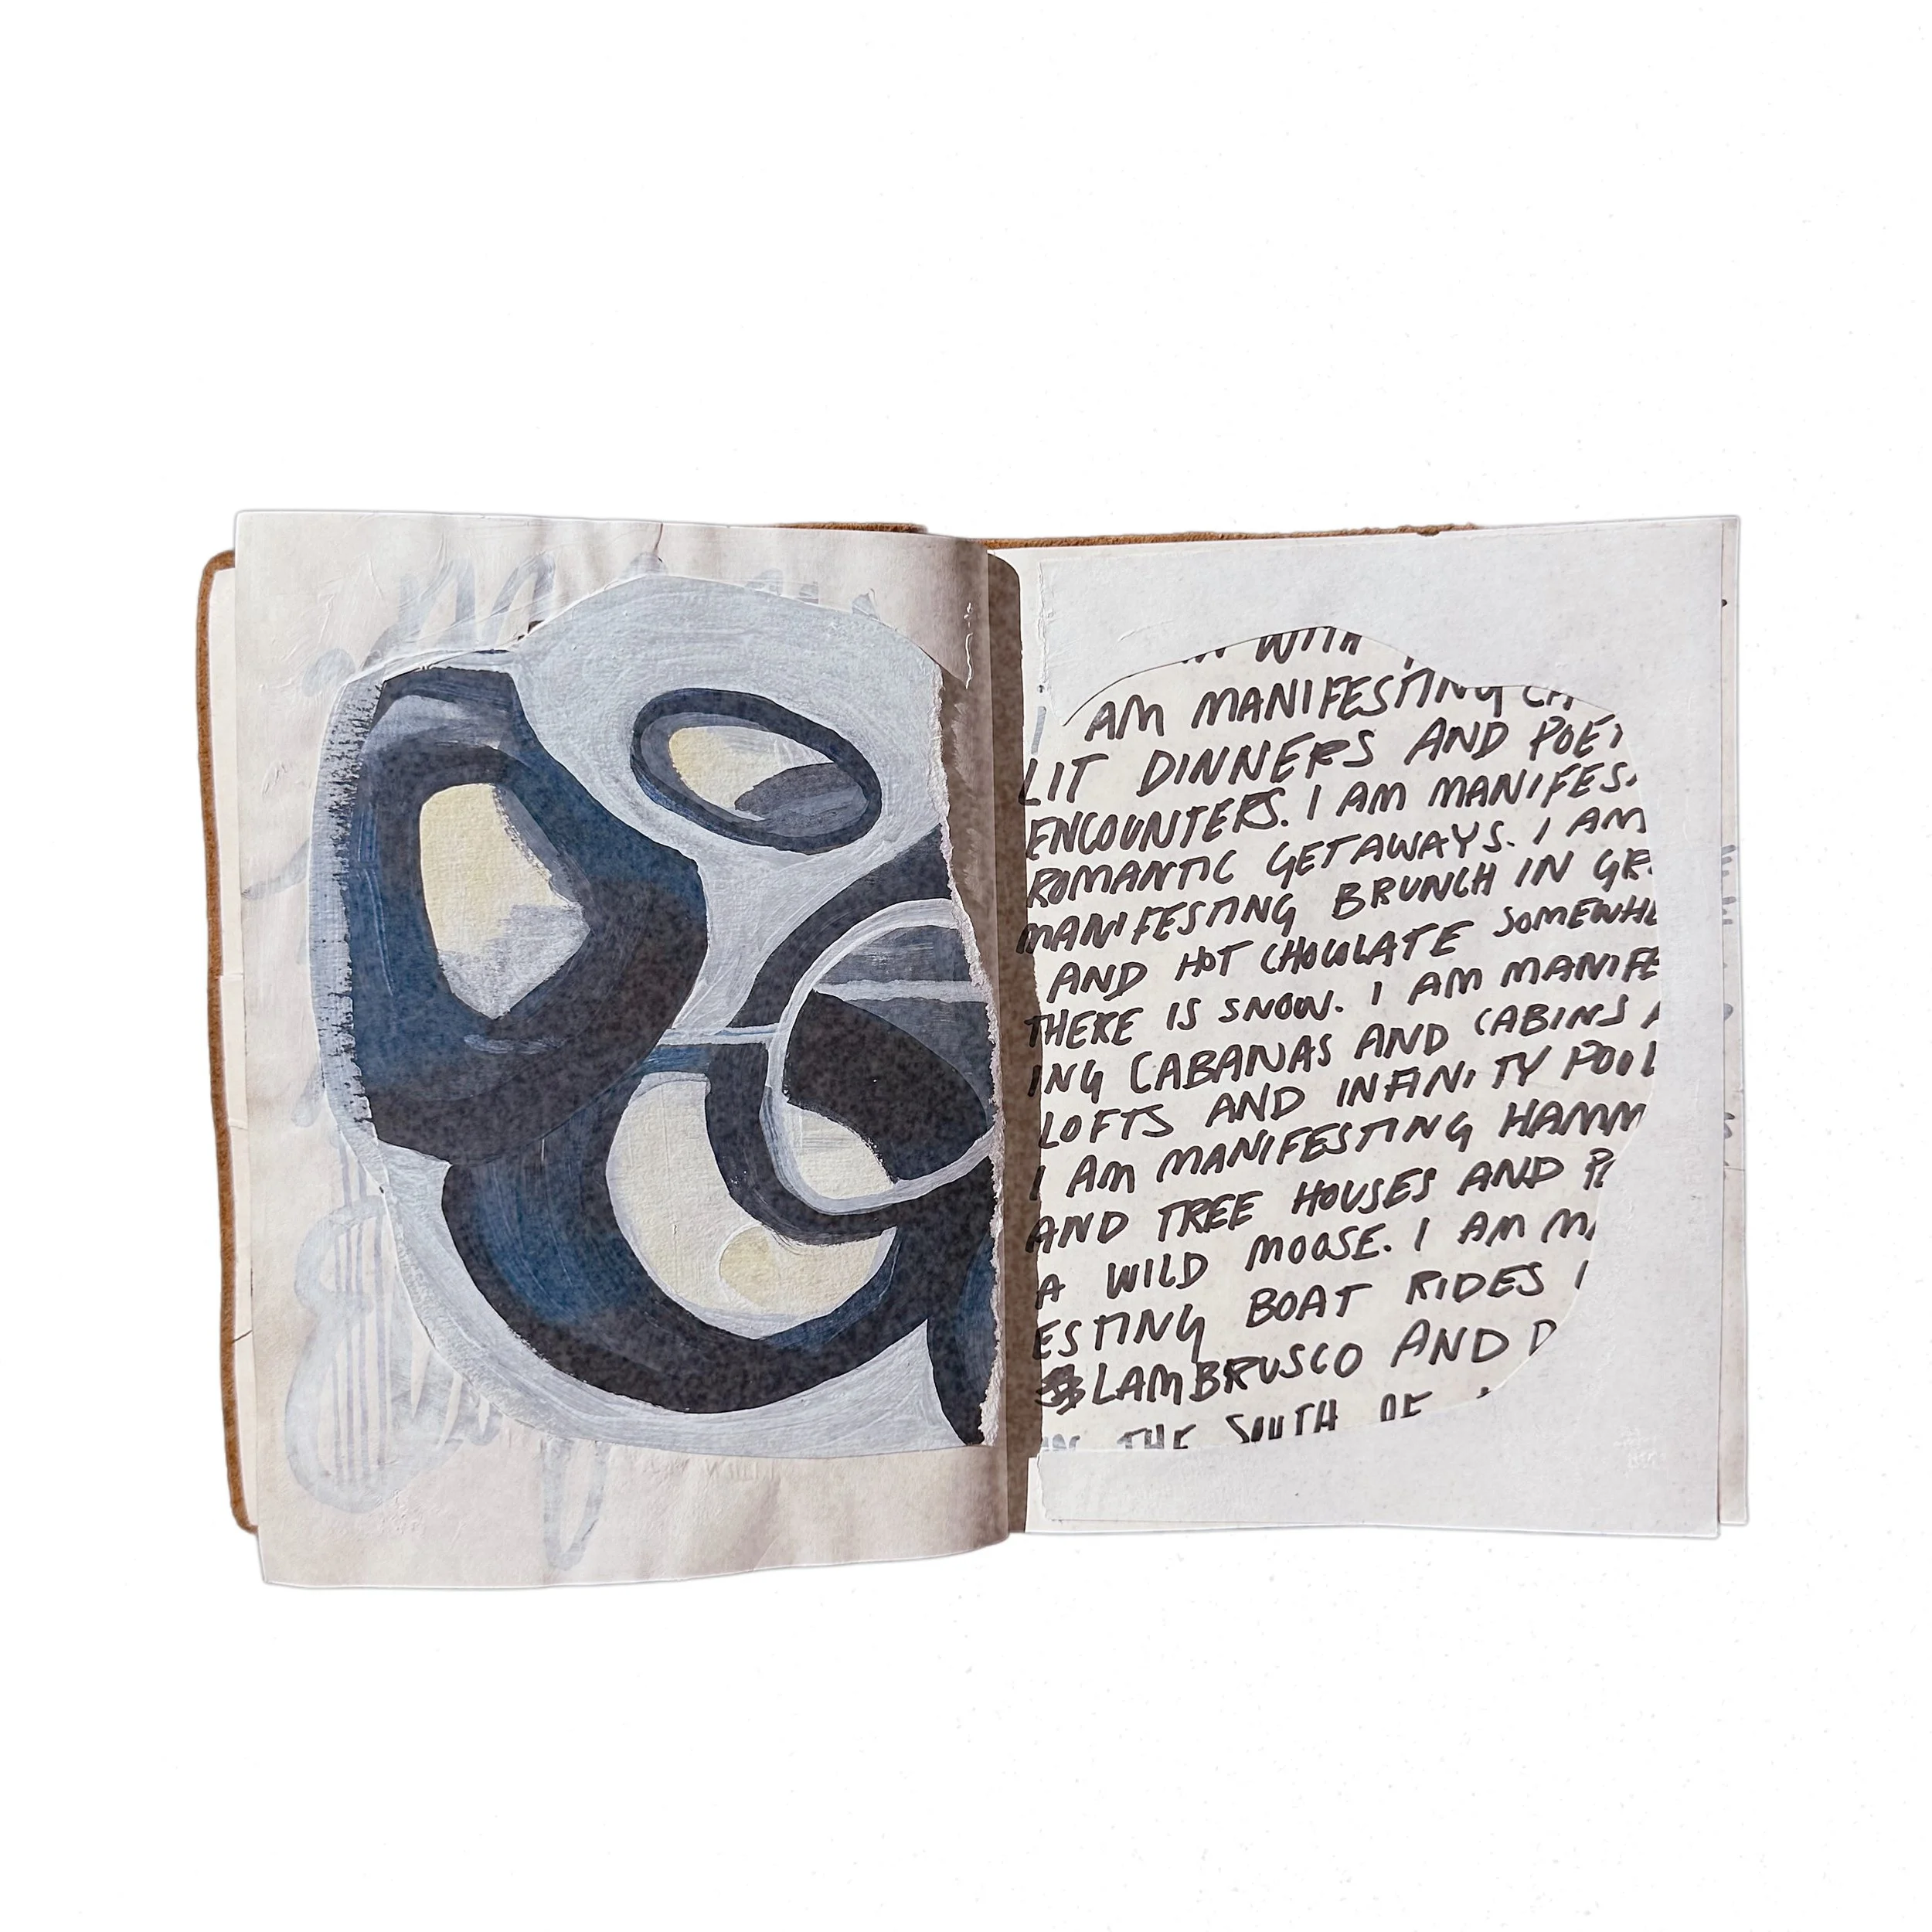 WITH
I AM MANIFESTING CA
LIT DINNERS AND POET
ENCOUNTERS. I AM MANIFES
ROMANTIC GETAWAYS. I AM
MANIFESTING BRUNCH IN GR
AND HOT CHOCOLATE SOMEWHE
THERE IS SNOW. I AM MANIFE
ING CABANAS AND CABINS A
LOFTS AND INFINITY POOL
I AM MANIFESTING HAMM
AND TREE HOUSES AND
A WILD MOOSE. I AM MA
ESTING BOAT RIDES
LAMBRUSCO AND D
IN THE SOUTH OF